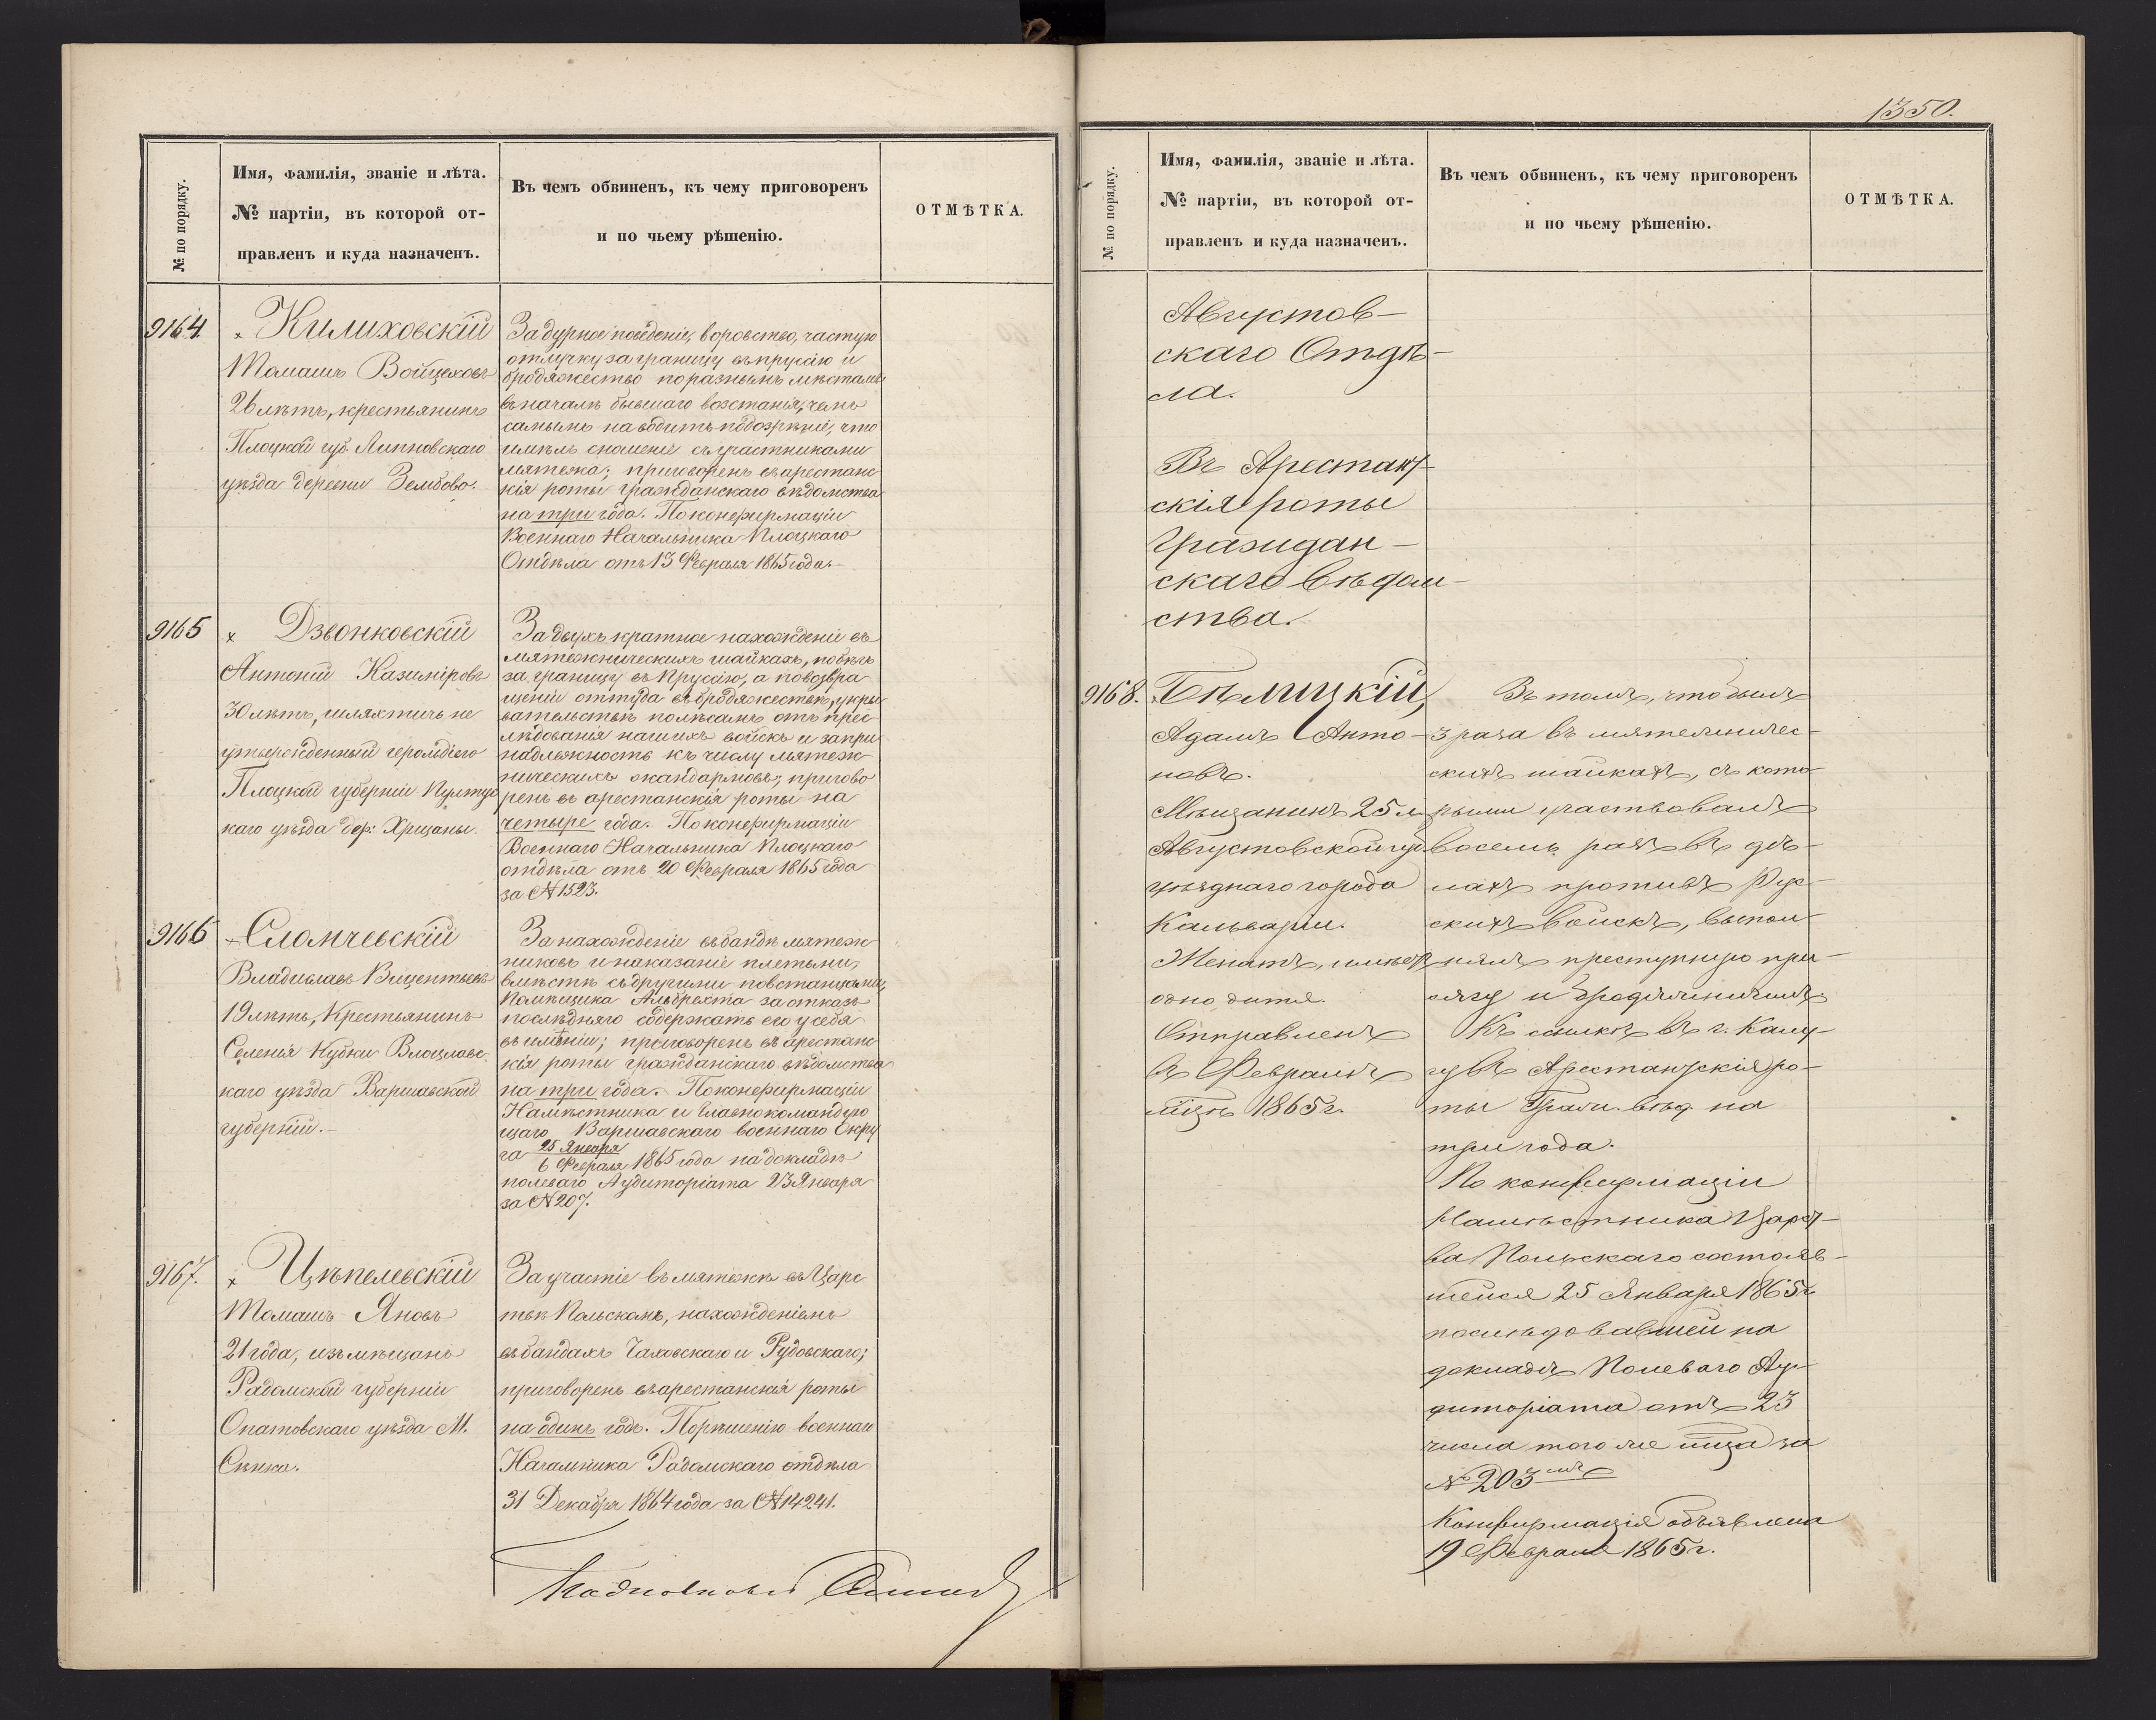 № по порядку.
Имя, фамилія, званіе и лѣта.
№ партіи, въ которой от-
правленъ и куда назначенъ.
Въ чемъ обвиненъ, къ чему приговоренъ
и по чьему рѣшенію.
ОТМѢТКА.
9164.
Килиховскій
Томашъ Войцеховъ
26 лѣтъ, крестьянинъ
Плоцкой губ. Липновскаго
уѣзда деревни Зембово.
За дурное поведеніе, воровство, частую
отлучку за границу въ Прусію и
бродяжество по разнымъ мѣстамъ
въ началѣ бывшаго возстанія, чемъ
самымъ наводитъ подозрѣніе, что
имѣлъ сношеніе съ участниками
мятежа; приговоренъ въ арестанс
кія роты гражданскаго вѣдомства
на три года. По конфирмаціи
Военнаго Начальника Плоцкаго
Отдѣла отъ 13 Февраля 1865 года.
9165
x Дзвонковскій
Антоній Казиміровъ
30 лѣтъ, шляхтичь не
утвержденный герольдіею
Плоцкой губерніи Пултус
каго уѣзда дер: Хрщаны.
За двухъ кратное нахожденіе въ
мятежническихъ шайкахъ, побѣгъ
за границу въ Прусію, а по возвра
щеніи оттуда въ бродяжествѣ, укры
вательствѣ по лѣсамъ отъ прес
лѣдованія нашихъ войскъ и за при
надлежность къ числу мятеж
ническихъ жандармовъ; пригово
ренъ въ арестанскія роты на
четыре года. По конфирмаціи
Военнаго Начальника Плоцкаго
отдѣла отъ 20 Февраля 1865 года
за № 1523.
9166
Сломчевскій
Владиславъ Вицентьевъ
19 лѣтъ, Крестьянинъ
Селенія Кубки Влоцлавс
каго уѣзда Варшавской
губерніи.
За нахожденіе въ бандѣ мятеж
никовъ и наказаніе плетьми,
вмѣстѣ съ другими повстанцами,
Помѣщика Альбрехта за отказъ
послѣдняго содержать его у себя
въ имѣніи; приговоренъ въ арестанс
кія роты гражданскаго вѣдомства
на три года. По конфирмаціи
Намѣстника и Главнокомандую
щаго Варшавскаго военнаго Окру
га 25 Января
6 Февраля 1865 года на докладѣ
полеваго Аудиторіата 23 Января
за № 207.
9167.
x Цѣпелевскій
Томашъ Яновъ
21 года, изъ мѣщанъ
Радомской губерніи
Опатовскаго уѣзда М.
Сѣнно.
За участіе въ мятежѣ въ Царс
твѣ Польскомъ, нахожденіемъ
въ бандахъ Чаховскаго и Рудовскаго;
приговоренъ въ арестанскія роты
на одинъ годъ. По рѣшенію военнаго
Начальника Радомскаго отдѣла
31 Декабря 1864 года за № 14241.
1350.
№ по порядку.
Имя, фамилія, званіе и лѣта.
№ партіи, въ которой от-
правленъ и куда назначенъ.
Въ чемъ обвиненъ, къ чему приговоренъ
и по чьему рѣшенію.
ОТМѢТКА.
Августов-
скаго Отдѣ-
ла.
Въ Арестант-
скія роты
Граждан-
скаго вѣдом-
ства.
9168.
Бѣлицкій,
Адамъ Анто-
новъ.
Мѣщанинъ 25 л.
Августовской губ.
уѣзднаго города
Кальваріи.
Женатъ, имѣетъ
одно дитя.
Отправленъ
въ Февралѣ
мцѣ 1865 г.
Въ томъ, что былъ
3 раза въ мятежничес-
кихъ шайкахъ, съ кото-
рыми участвовалъ
восемь разъ въ дѣ-
лахъ противъ Рус-
скихъ войскъ, выпол-
нялъ преступную при-
сягу и бродяжничалъ.
Къ ссылкѣ въ г. Калу-
гу въ Арестантскія ро-
ты Гражд. вѣд. на
три года.
По конфирмаціи
Намѣстника Царст-
ва Польскаго состояв-
шейся 25 Января 1865 г.
послѣдовавшей на
докладѣ Полеваго Ау-
диторіата отъ 23
числа того же мца за
№ 203 мъ
Конфирмація объявлена
19 Февраля 1865 г.